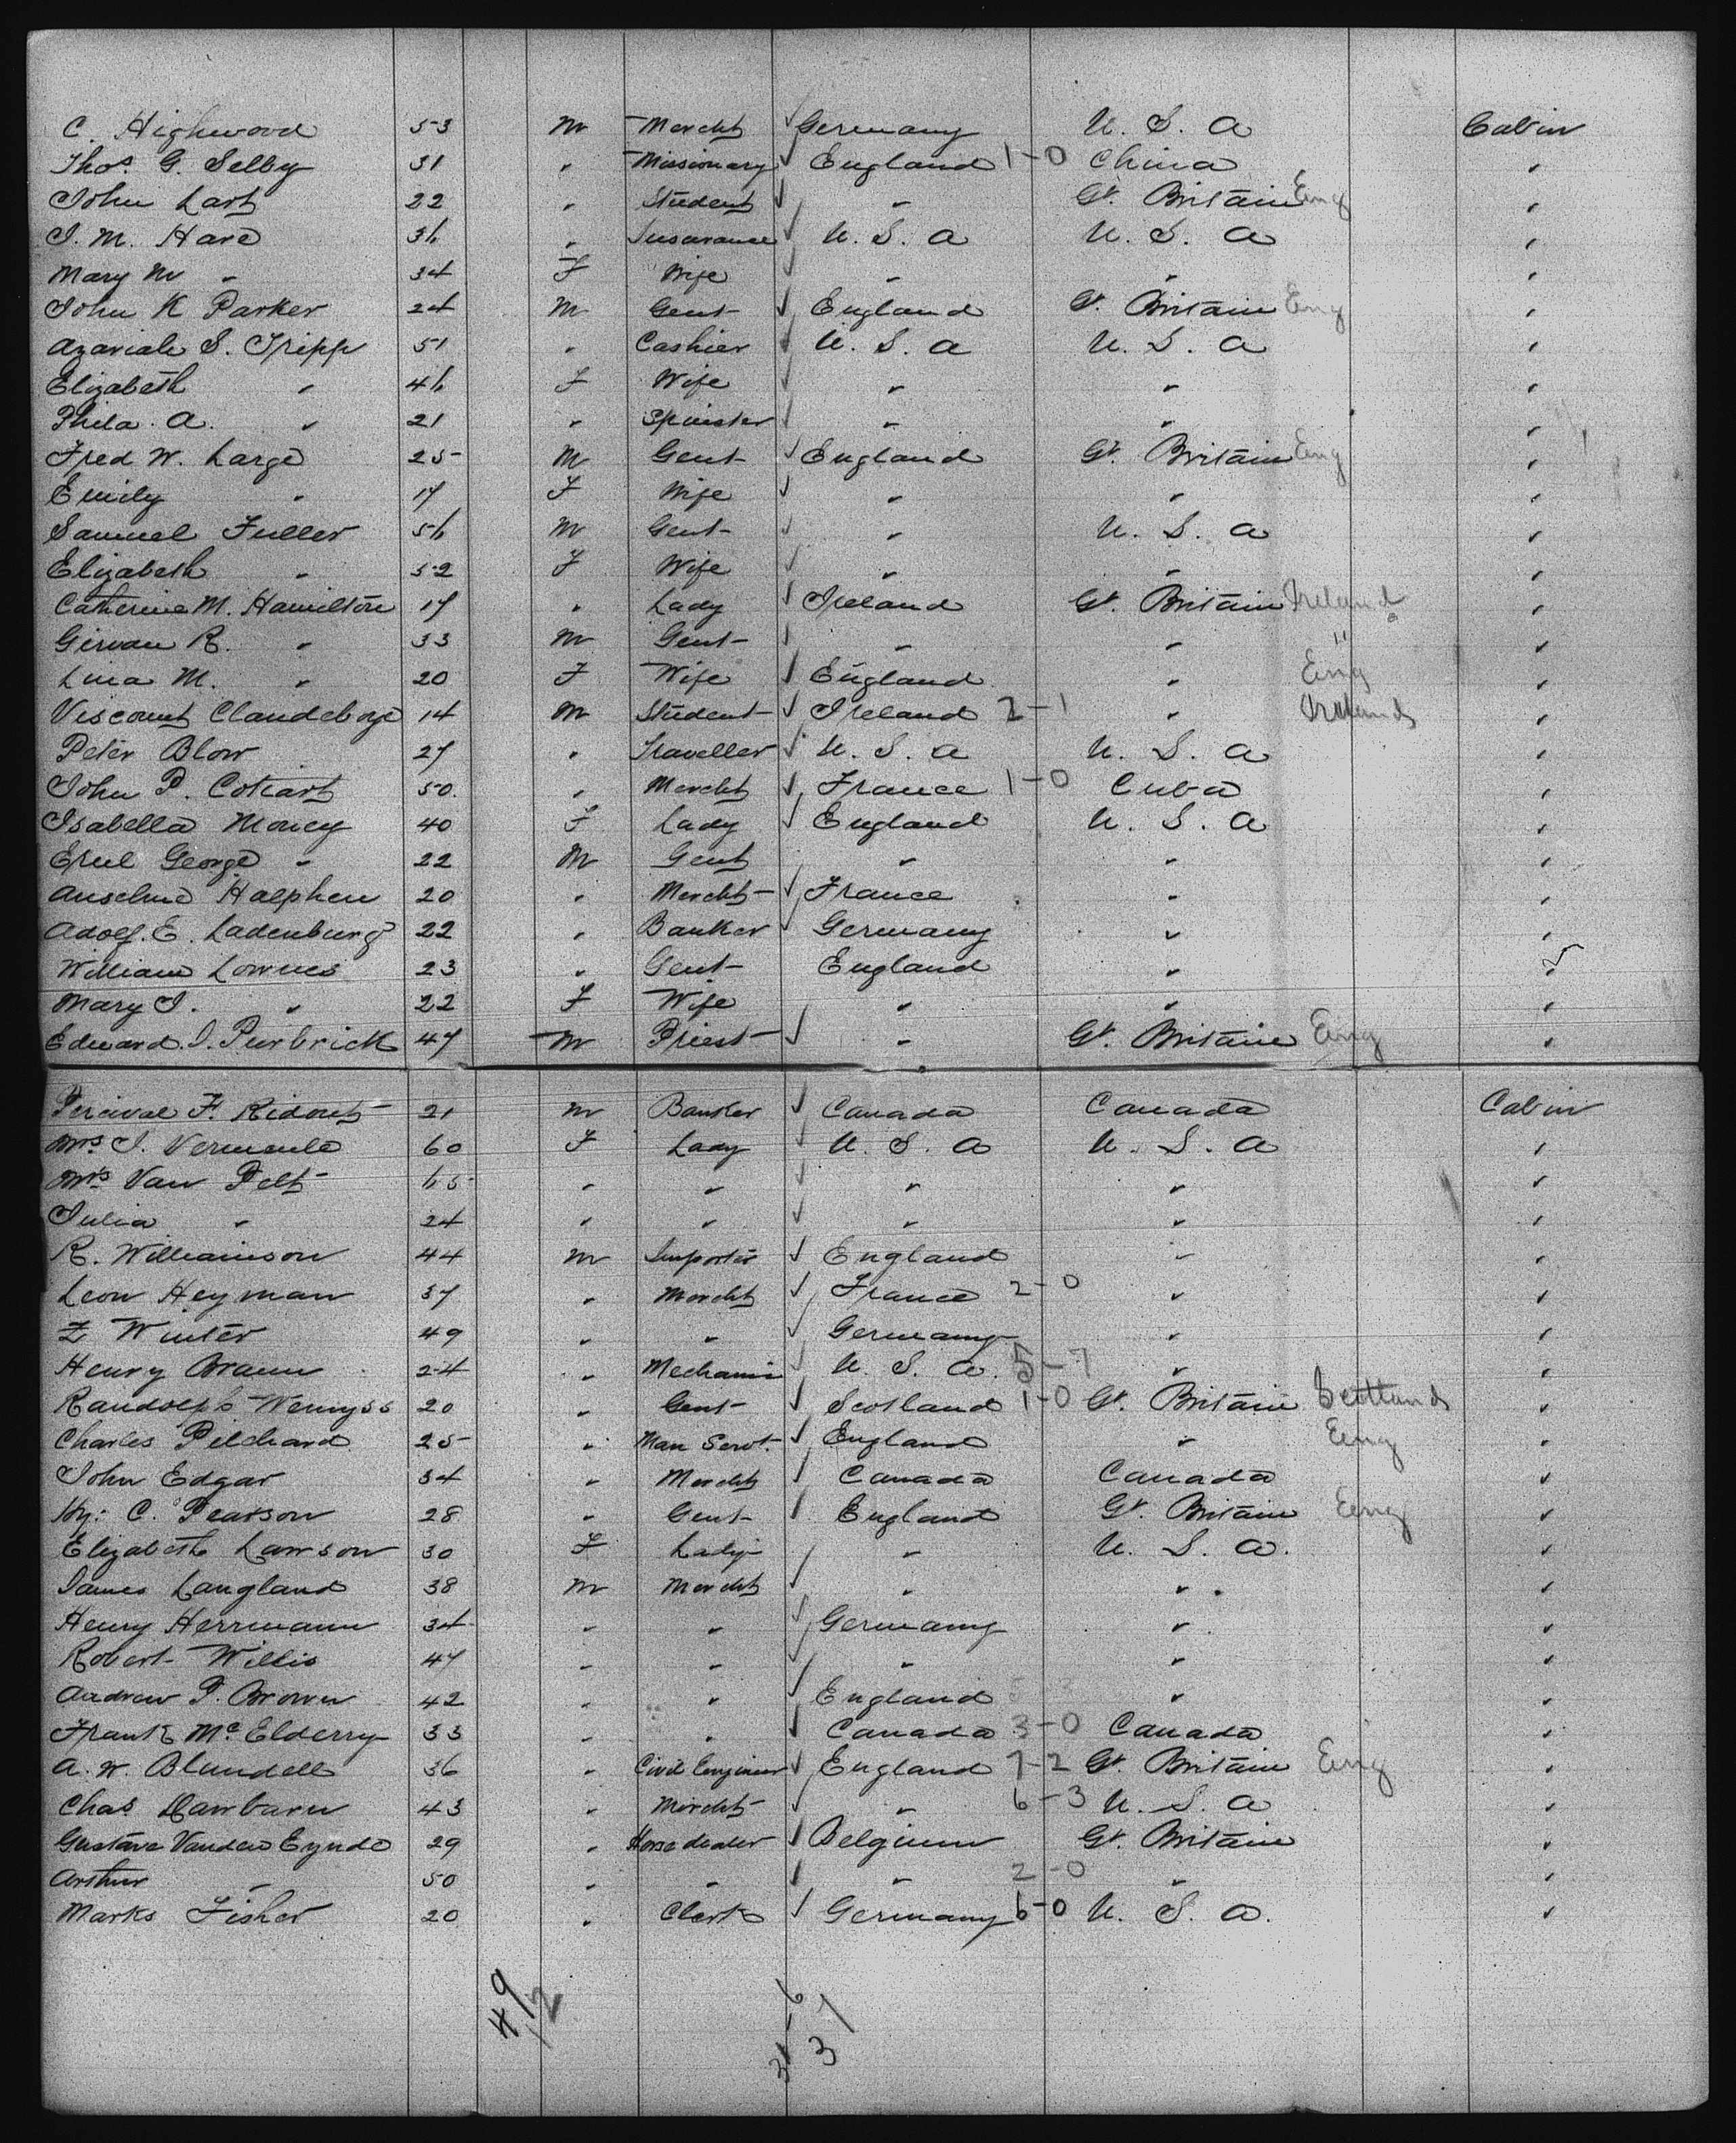 C. Highwood 53 M Mercht Germany U. S. A Cabin
Thos. G. Selby 31 " Missionary England 1-0 China "
John Last 22 " Student " Gt. Britain Eng "
J. M. Hare 36 " Insurance U. S. A U. S. A "
Mary M " 34 F Wife " " "
John K Parker 24 M Gent England Gt. Britain Eng "
Azariah S. Tripp 51 " Cashier U. S. A U. S. A "
Elizabeth " 46 F Wife " " "
Phila. A. " 21 " Spinster " " "
Fred W. Large 25 M Gent England Gt. Britain Eng "
Emily " 17 F Wife " " "
Samuel Fuller 56 M Gent " U. S. A "
Elizabeth " 52 F Wife " " "
Catherine M. Hamilton 17 " Lady Ireland Gt. Britain Ireland "
Girvan R. " 33 M Gent " " " "
Lina M. " 20 F Wife England " Eng "
Viscount Clandeboye 14 M Student Ireland 2-1 " Ireland "
Peter Blow 27 " Traveller U. S. A U. S. A "
John P. Cotiart 50 " Mercht France 1-0 Cuba "
Isabella Money 40 F Lady England U. S. A "
George " 22 M Gent " " "
Anselme Halphen 20 " Mercht France " "
Adolf. E. Ladenburg 22 " Banker Germany " "
William Lownes 23 " Gent England " "
Mary J. " 22 F Wife " " "
Edward. I. Purbrick 47 M Priest " Gt. Britain Eng "
Percival F. Ridout 21 M Banker Canada Canada Cabin
Mrs. J. Vermeule 60 F Lady U. S. A U. S. A "
Mrs Van Pelt 65 " " " " "
Julia " 24 " " " " "
R. Williamson 44 M Importer England " "
Leon Heyman 37 " Mercht France 2-0 " "
Z Winter 49 " " Germany " "
Henry Braun 24 " Mechanic U. S. A. 5-7 " "
Randolph Wemyss 20 " Gent Scotland 1-0 Gt. Britain Scotland "
Charles Pilchard 25 " Man Servt. England " Eng "
John Edgar 34 " Mercht Canada Canada "
Hy: C. Pearson 28 " Gent England Gt. Britain Eng "
Elizabeth Lawson 30 F Lady " U. S. A. "
James Langland 38 M Mercht " " "
Henry Herrmann 34 " " Germany " "
Robert Willis 47 " " " " "
Andrew P. Brown 42 " " England " "
Frank McElderry 33 " " Canada 3-0 Canada "
A. W. Blundell 36 " Civil Engineer England 7-2 Gt. Britain Eng "
Chas Dawbarn 43 " Mercht " 6-3 U. S. A "
Gustave Vanden Eynde 29 " Horse dealer Belgium Gt. Britain "
Arthur " 50 " " " 2-0 " "
Marks Fisher 20 " Clerk Germany 6-0 U. S. A. "
49/12
31-6
37